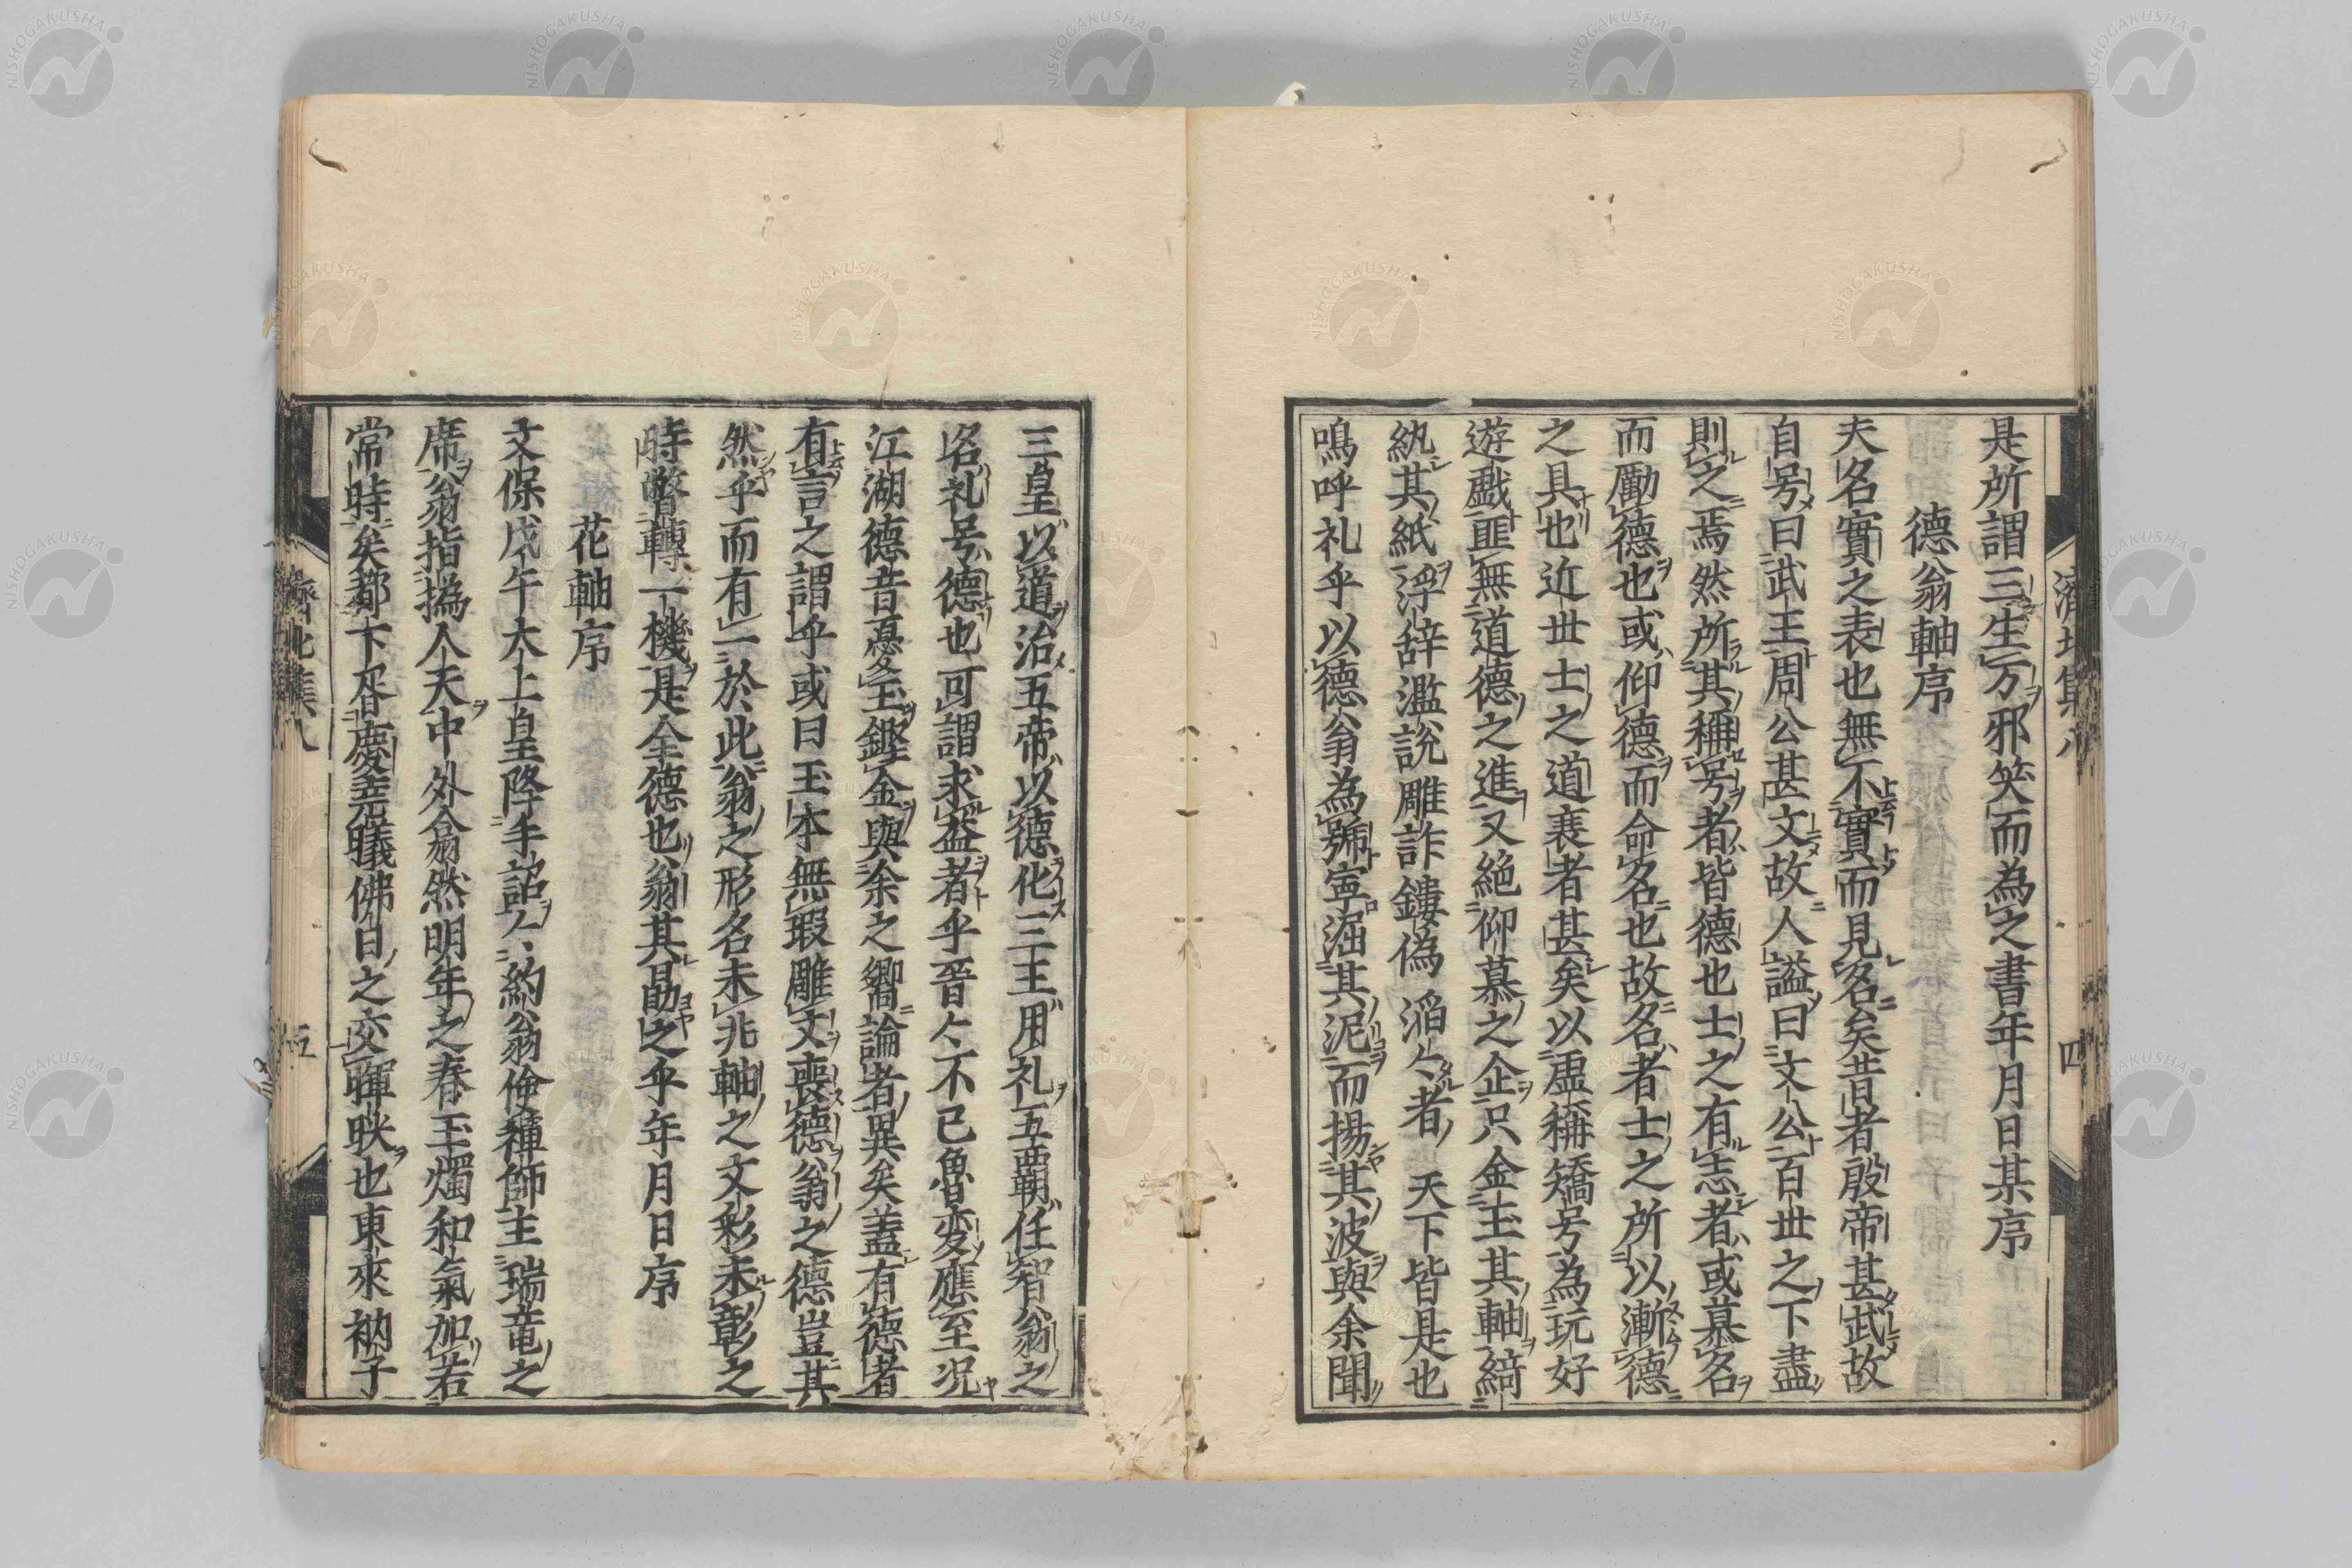 是所謂三生万邪笑而為之書年月日某序
德翁軸序
夫名實之表也無不實而見名矣昔者殷帝甚武故
自号曰武王周公甚文故人謚曰文公百世之下盡
則之焉然所其稱号者皆德也士之有志者或慕名
而勵德也或仰德而命名也故名者士之所以漸德
之具也近世士之道衰者甚矣以虛稱矯号為玩好
遊戲匪無道德之進又絕仰慕之企只金玉其軸綺
紈其紙浮辞濫說雕詐鏤偽滔々者天下皆是也
嗚呼礼乎以德翁為號寧淈其泥而揚其波與余聞
濟北集八 四
三皇以道治五帝以德化三王用礼五覇任智翁之
名礼号德也可謂求益者乎晉々不已魯変應至况
江湖德昔憂玉鏗金與余之鄉論者異矣蓋有德者
有言之謂乎或曰玉本無瑕雕文喪德翁之德豈其
然乎而有一於此翁之形名未兆軸之文彩未彰之
時瞥轉一機是全德也翁其勗之乎年月日序
花軸序
文保戊午太上皇降手詔々約翁儉禪師主瑞竜之
席翁指撝人天中外翕然明年之春玉燭和氣加若
常時矣都下咨慶堯曦佛日之交暉映也東來衲子
濟北集八 五
NISHOGAKUSHA